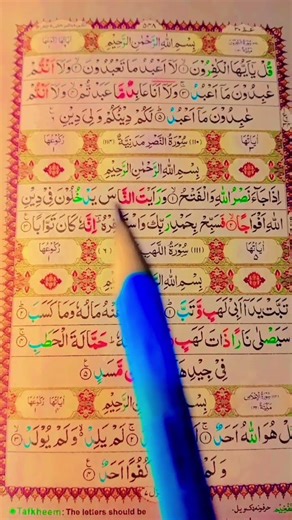 بِسْمِ اللهِ الرَّحْمٰنِ الرَّحِيْمِ
قُلْ يٰۤاَيُّهَا الْكٰفِرُوْنَ ۙ﴿۱﴾ لَاۤ اَعْبُدُ مَا تَعْبُدُوْنَ ۙ﴿۲﴾ وَلَاۤ اَنْتُمْ
عٰبِدُوْنَ مَاۤ اَعْبُدُ ۚ﴿۳﴾ وَلَاۤ اَنَا عَابِدٌ مَّا عَبَدْتُّمْ ۙ﴿۴﴾ وَلَاۤ اَنْتُمْ
عٰبِدُوْنَ مَاۤ اَعْبُدُ ؕ﴿۵﴾ لَكُمْ دِيْنُكُمْ وَلِيَ دِيْنِ
اٰيَاتُهَا (١١٠) سُوْرَةُ النَّصْرِ مَدَنِيَّةٌ رُكُوْعُهَا
بِسْمِ اللهِ الرَّحْمٰنِ الرَّحِيْمِ
اِذَا جَآءَ نَصْرُ اللهِ وَالْفَتْحُ ۙ﴿۱﴾ وَرَاَيْتَ النَّاسَ يَدْخُلُوْنَ فِيْ دِيْنِ
اللهِ اَفْوَاجًا ۙ﴿۲﴾ فَسَبِّحْ بِحَمْدِ رَبِّكَ اِنَّهٗ كَانَ تَوَّابًا
(١١١) سُوْرَةُ اللَّهَبِ
تَبَّتْ يَدَاۤ اَبِيْ لَهَبٍ وَّتَبَّ مَالُهٗ وَمَا كَسَبَ
سَيَصْلٰى نَارًا ذَاتَ لَهَبٍ حَمَّالَةَ الْحَطَبِ
فِيْ جِيْدِهَا مَّسَدٍ
بِسْمِ الرَّحِيْمِ
قُلْ هُوَ اللهُ اَحَدٌ لَمْ يَلِدْ وَلَمْ يُوْلَدْ
وَلَمْ كُفُوًا اَحَدٌ
Talkheem: The letters should be